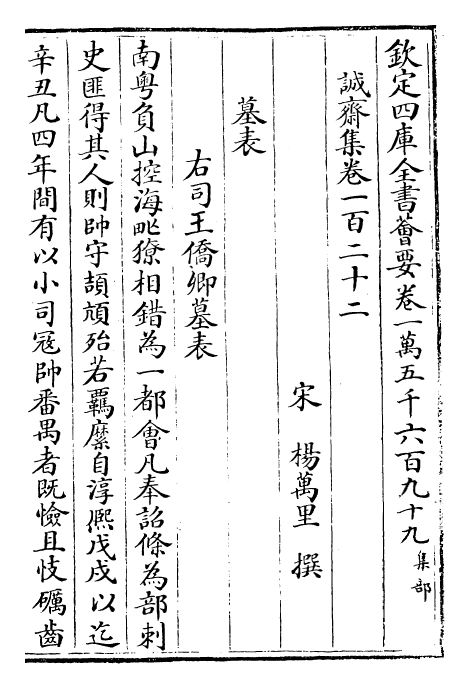 欽定四庫全書薈要卷一萬五千六百九十九 集部
誠齋集卷一百二十二
宋 楊萬里 撰
墓表
右司王僑卿墓表
南粤負山控海毗獠相錯為一都會凡奉詔條為部刺
史匪得其人則帥守頡頏殆若覊縻自淳熈戊戌以迄
辛丑凡四年間有以小司冦帥番禺者既憸且忮礪齒